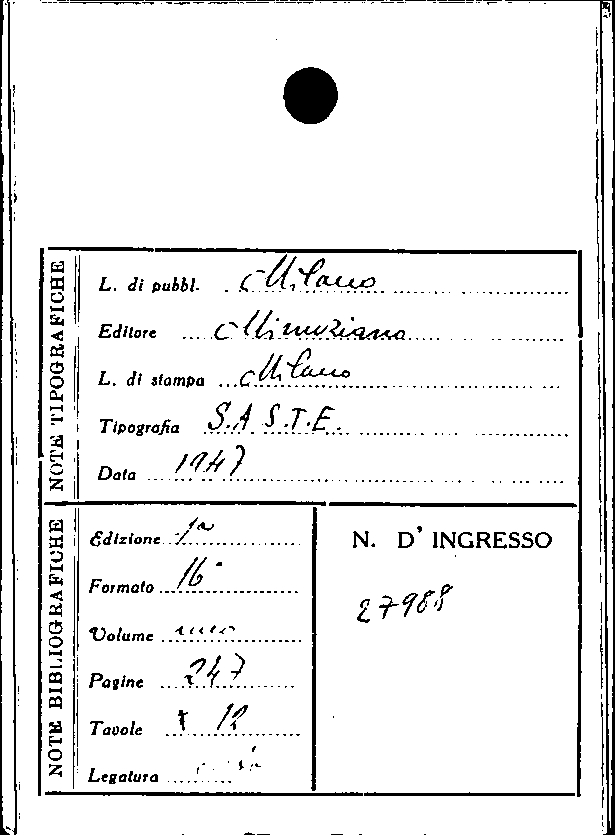 NOTE TIPOGRAFICHE
L. di pubbl. Milano
Editore Minuziano
L. di stampa Milano
Tipografia S.A S.T.E.
Data 1947
NOTE BIBLIOGRAFICHE
Edizione 1a
Formato 16°
Volume uno
Pagine 247
Tavole + 12
Legatura
N. D' INGRESSO
27988